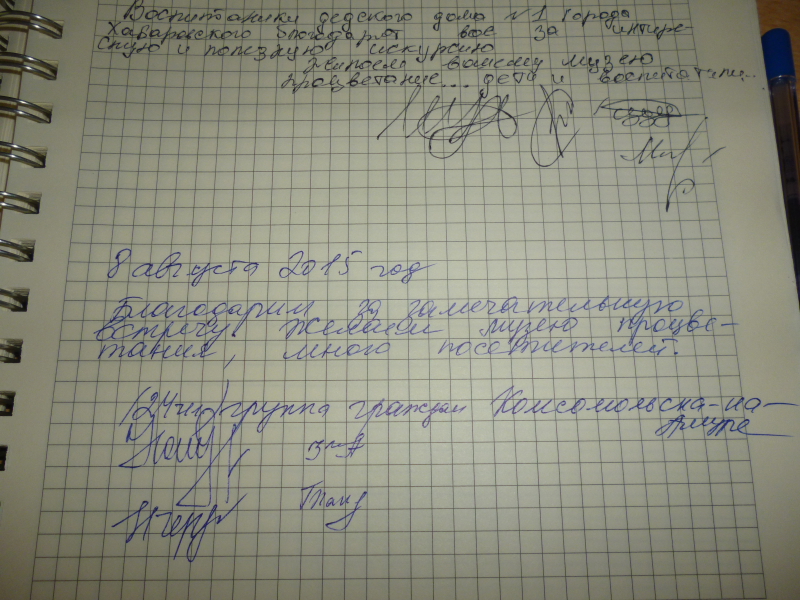 Воспитаники дедского дома №1 города
Хабаровского благодарят вас за интире-
сную и полезную искурсию
Желаем вашему музею
процветание... дети и воспитатили...
8 августа 2015 год
Благодарим за замечательную
встречу. Желаем музею процве-
тания, много посетителей.
(24 чел) группа граждан Комсомольска-на-
Амуре